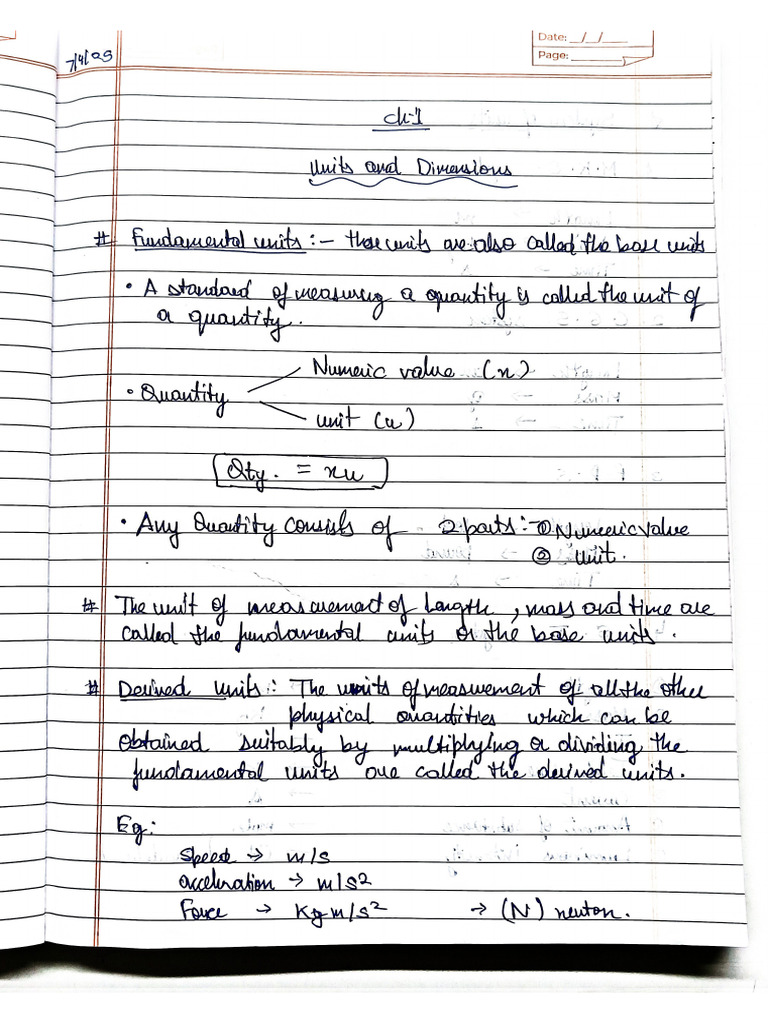 Date: _/_/_
Page: ______
7/4/25
Ch-1
Units and Dimensions
# Fundamental units :- these units are also called the base units
• A standard of measuring a quantity is called the unit of
a quantity.
• Quantity
Numeric value (n)
unit (u)
Qty. = nu
• Any Quantity consists of 2 parts :- ① Numeric value
② unit.
# The unit of measurement of Length, mass and time are
called the fundamental units or the base units.
# Derived units : The units of measurement of all the other
physical quantities which can be
obtained suitably by multiplying or dividing the
fundamental units are called the derived units.
Eg:
Speed → m/s
acceleration → m/s²
Force → Kg m/s² → (N) neuton.